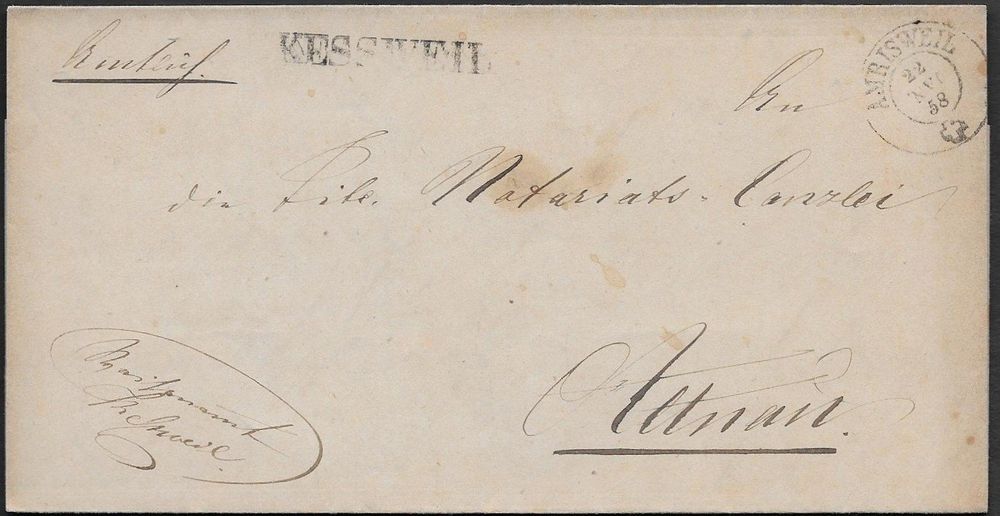 Amtlich.
KESSWEIL
AMRISWEIL
22
58
An
die Titl. Notariats-Canzlei
Altnau.
Waisenamt
Keßweil.